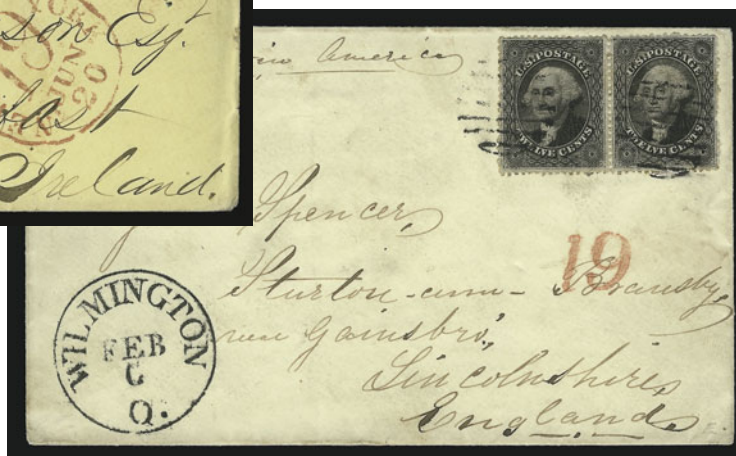 son Esq.
JUN
20
fast
Ireland.
America
U.S. POSTAGE
TWELVE CENTS
U.S. POSTAGE
TWELVE CENTS
Spencer,
19
Sturton-cum-Bransby,
near Gainsbro',
Lincolnshire,
England
WILMINGTON
FEB
6
O.